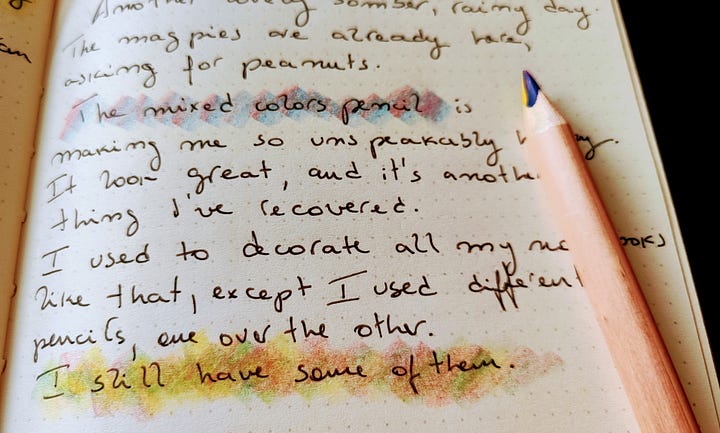 Another lovely somber, rainy day.
The magpies are already here,
asking for peanuts.
The mixed colors pencil is
making me so unspeakably
It look great, and it's anothe
thing I've recovered.
I used to decorate all my no ooks
like that, except I used different
pencils, one over the other.
I still have some of them.